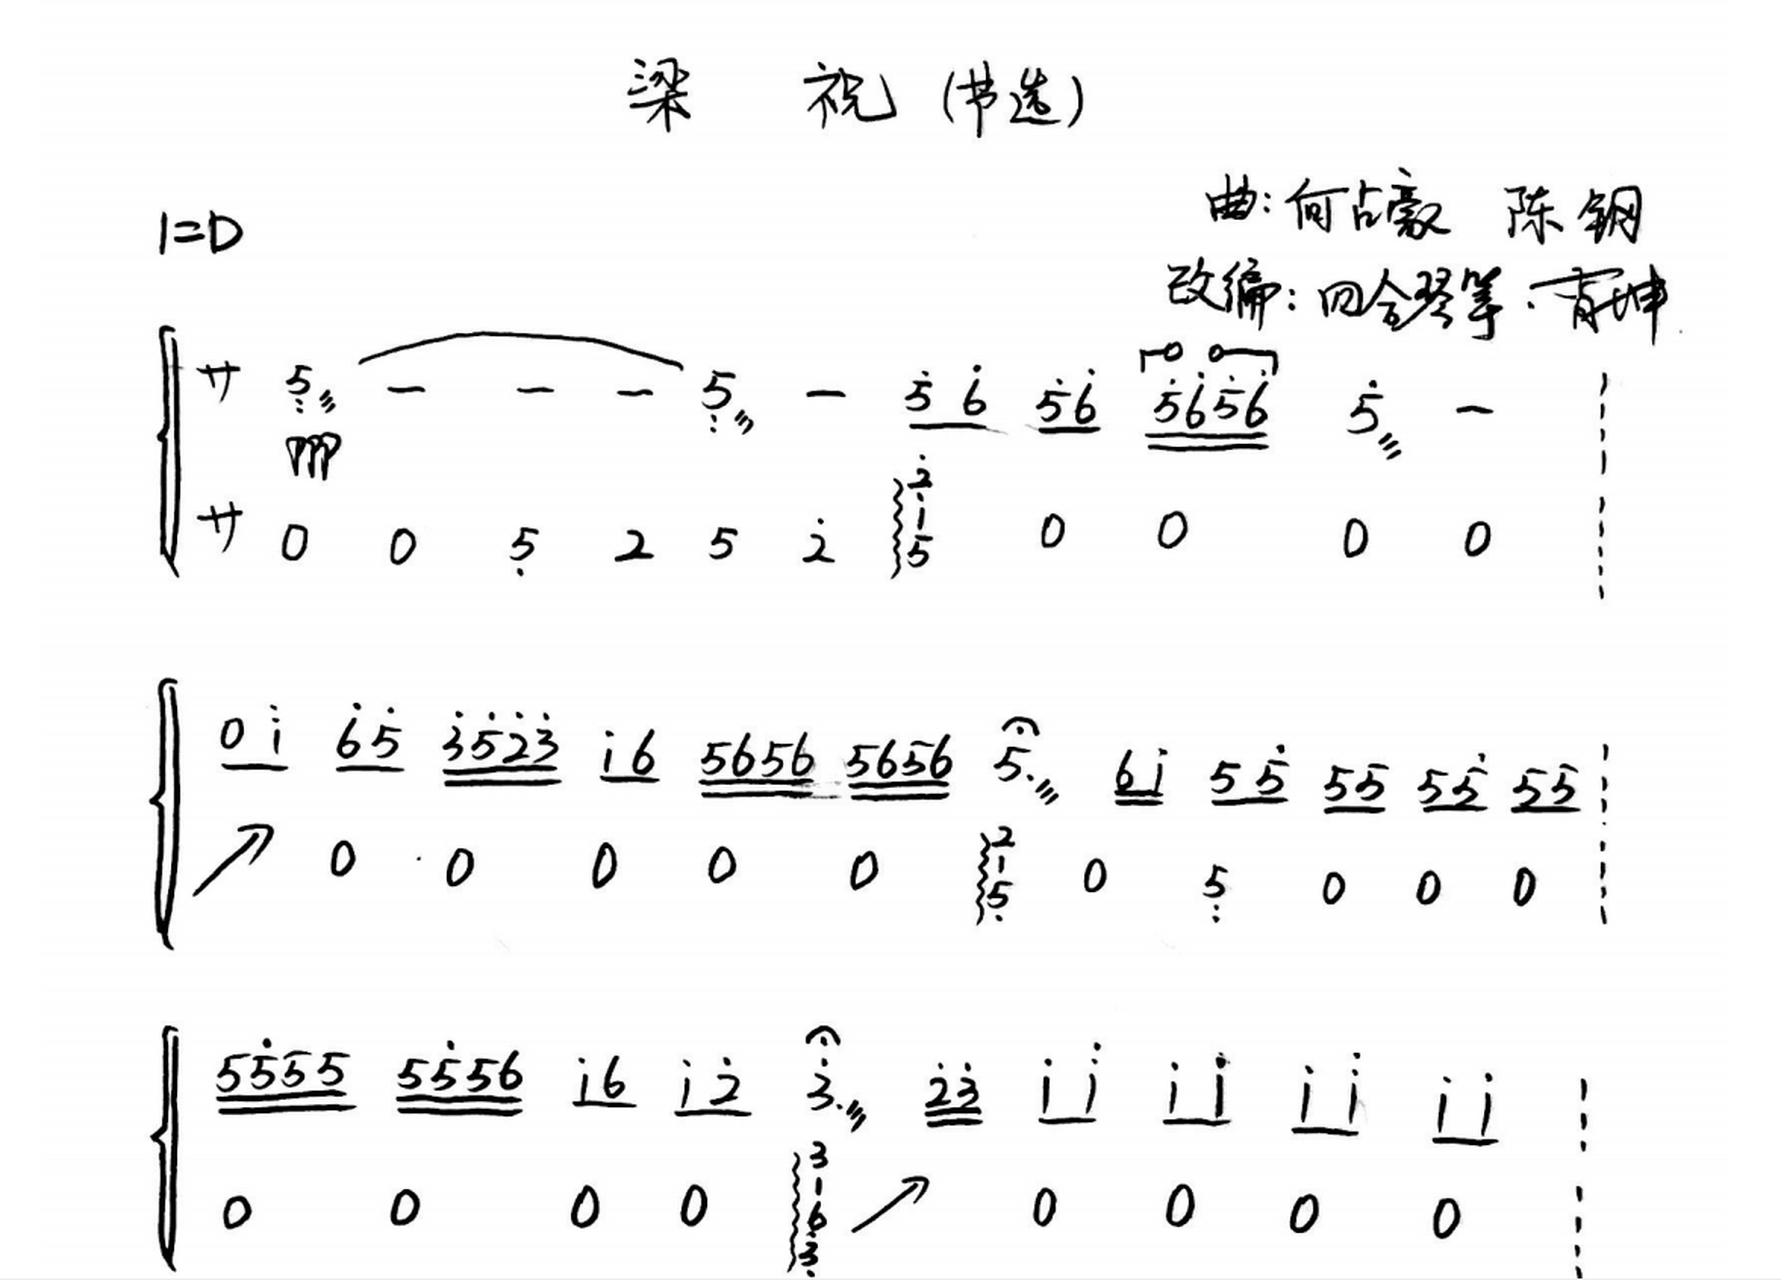 梁 祝 (节选)
曲: 何占豪 陈钢
1=D
改编: 四合琴筝·青坤
サ 5 - - - 5 - 5 6 56 5656 5 -
ppp
サ 0 0 5 2 5 2 2 1 5 0 0 0 0
0 i 6 5 3523 i 6 5656 5656 5. 6i 5 5 55 55 55
0 0 0 0 0 2 1 5 0 5 0 0 0
5555 5556 i6 i 2 3. 23 i i i i i i i i
0 0 0 0 3 1 6 3 0 0 0 0